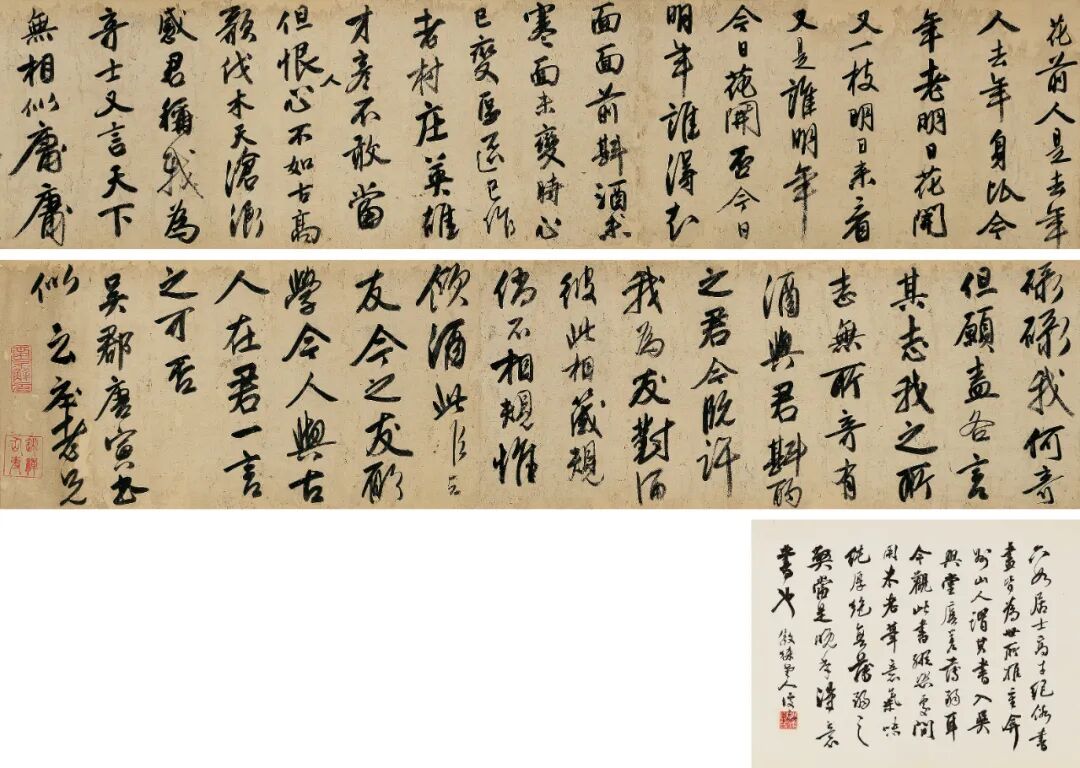 花前人是去年
人去年身比今
年老明日花開
又一枝明日來看
又是誰明年
今日花開否今日
明年誰得知
面面前斟酒未
寒面未變時心
已變區區已作
老村庄英雄
才彥不敢當
但恨人心不如古高
歌伐木天滄浪
感君稱我為
奇士又言天下
無相似庸庸
碌碌我何奇
但願盡各言
其志我之所
志無所奇有
酒與君斟酌
之君今既許
我為友對酒
彼此相箴規
倘不相規惟
傾酒此
友今之友爾
學今人與古
人在君一言
之可否
吳郡唐寅書
似云莊老兄
六如居士高才絕俗書
畫皆為世所推重弇
州山人謂其書入吳
興堂廡差薄弱耳
今觀此書縱恣處間
用米老筆意氣味
純厚絕無薄弱之
弊當是晚年得意
書也